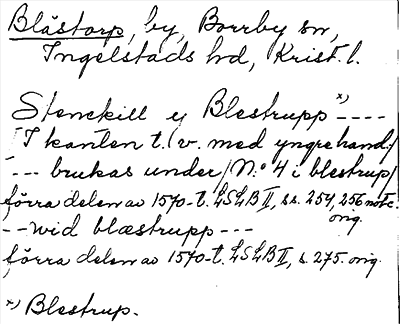 Blästorp, by, Borrby sn,
Ingelstads hd, Krist. l.
Stenekill y Blestrupp x) ----
/I kanten t.(v. med yngre hand/
--- brukas under/N:o 4 i blestrup/
förra delen av 1570-t. LSLB II, ss. 254, 256 not c.
orig.
-- wid blæstrupp ---
förra delen av 1570-t. LSLB II, s. 275. orig.
x) Blestrup.